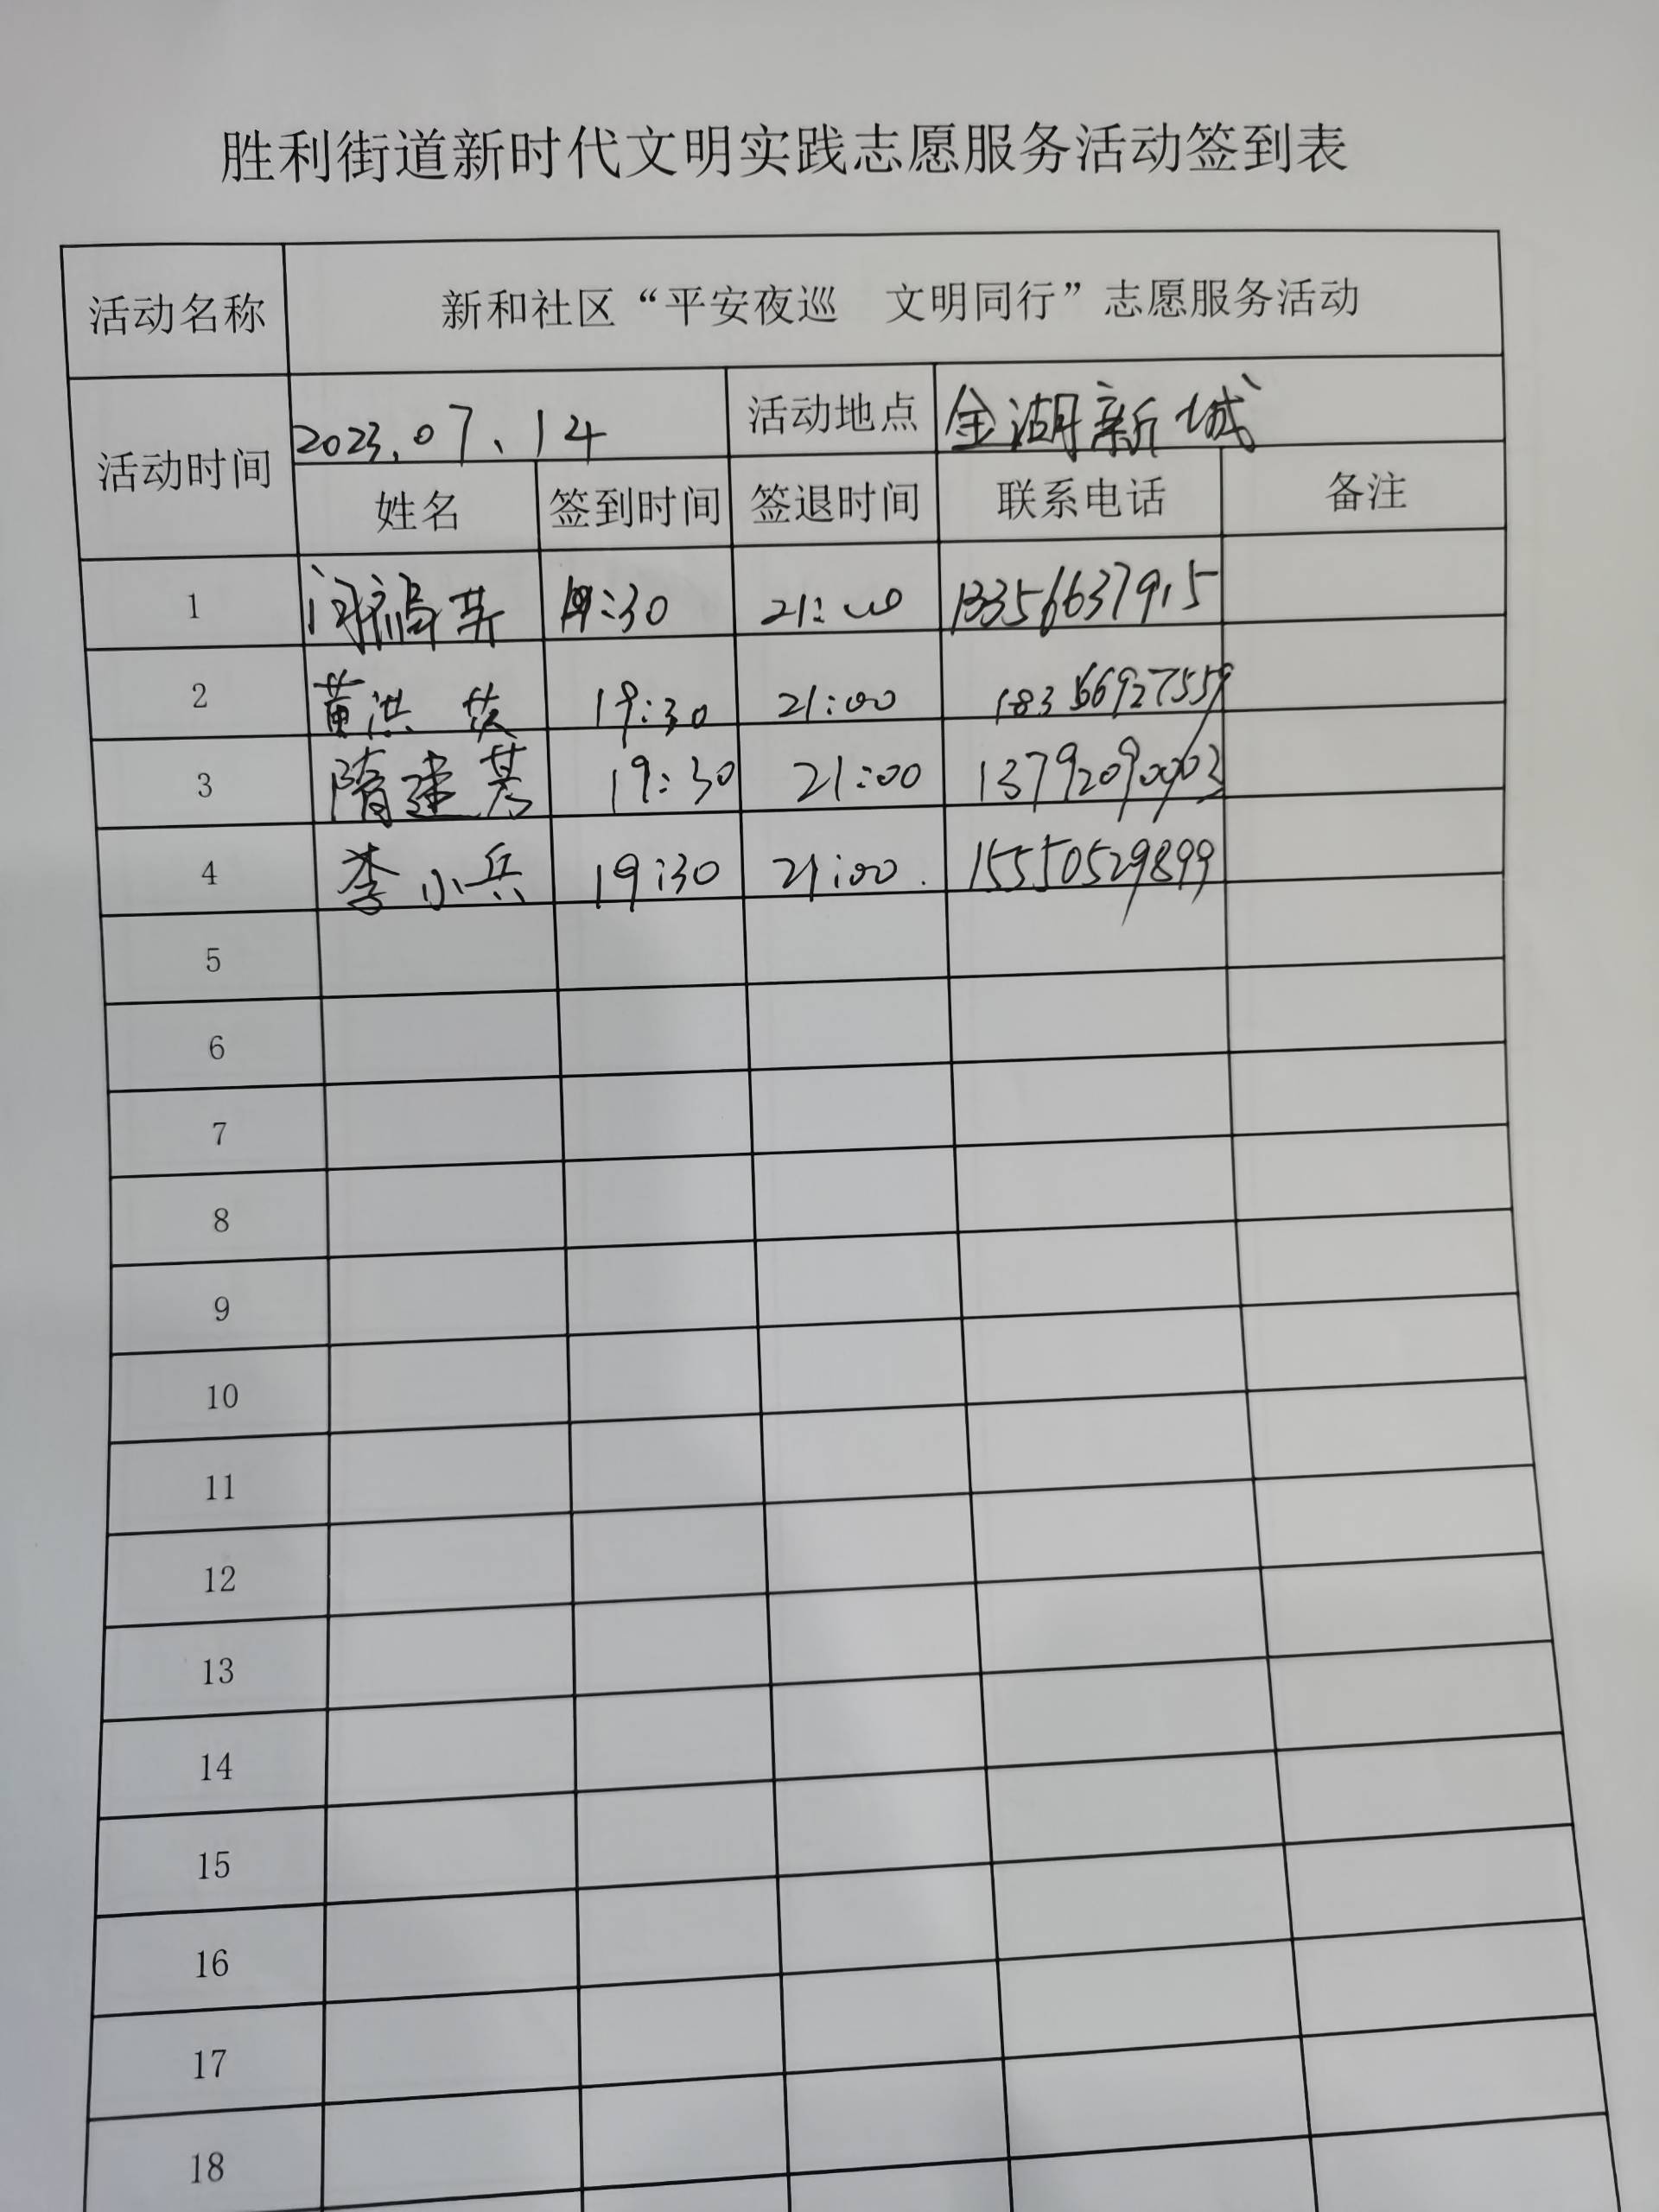 胜利街道新时代文明实践志愿服务活动签到表
活动名称 新和社区“平安夜巡 文明同行”志愿服务活动
活动时间 2023.07.14 活动地点 金湖新城
姓名 签到时间 签退时间 联系电话 备注
1 19:30 21:00 13356637915
2 黄洪 19:30 21:00 183566927559
3 隋建 19:30 21:00 13792090903
4 李小兵 19:30 21:00 15550529899
5
6
7
8
9
10
11
12
13
14
15
16
17
18